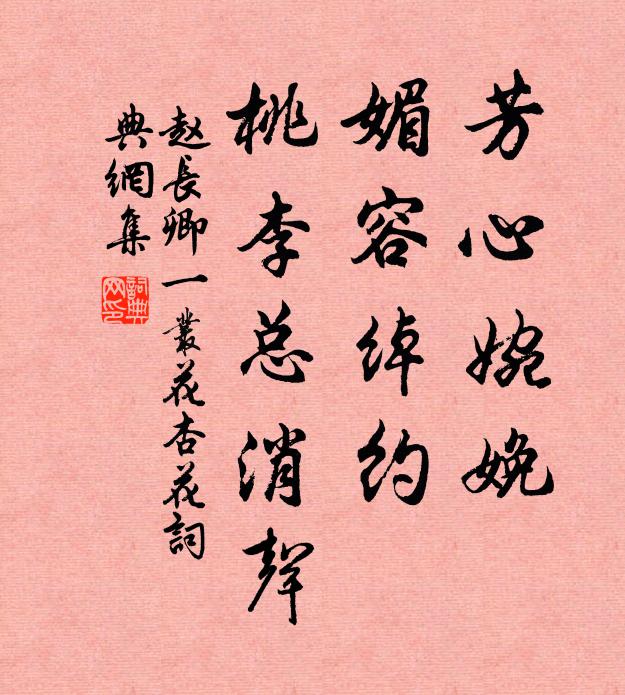 芳心婉娩
媚容绰约
桃李总消聲
赵長卿一叢花杏花詞
典網集
詞典网印